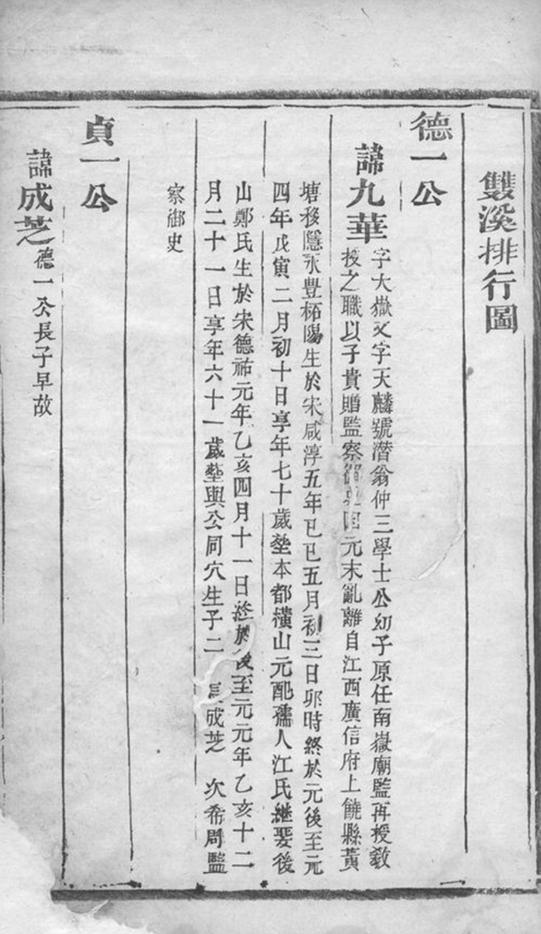 雙溪排行圖
德一公
諱九華
字大嶽又字天麟號潛翁仲三學士公幼子原任南嶽廟監再授敎
授之職以子貴贈監察御史因元末亂離自江西廣信府上饒縣黃
塘移隱永豐柘陽生於宋咸淳五年己巳五月初三日卯時終於元後至元
四年戊寅二月初十日享年七十歲塟本都橫山元配孺人江氏継娶後
山鄭氏生於宋德祐元年乙亥四月十一日終於後至元元年乙亥十二
月二十一日享年六十一歲塟與公同穴生子二 長成芝 次希周監
察御史
貞一公
諱成芝德一公長子早故